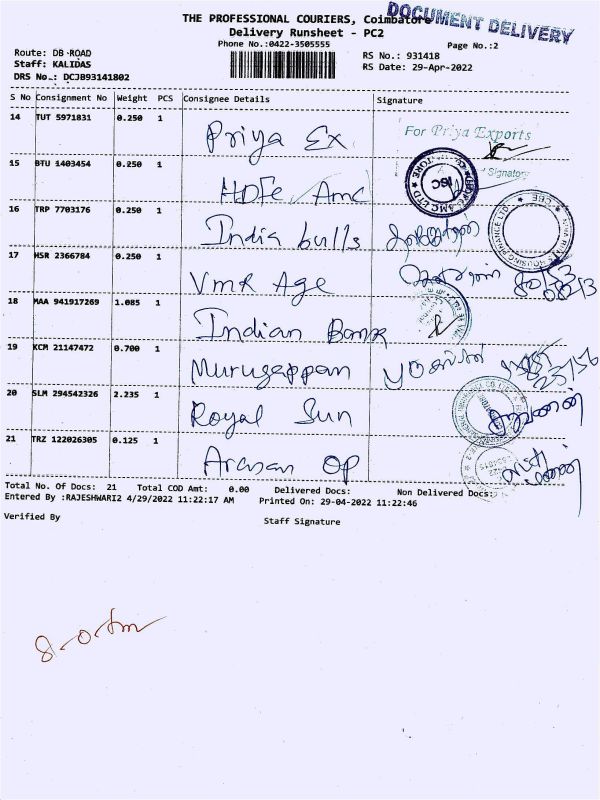 THE PROFESSIONAL COURIERS, Coimbatore
DOCUMENT DELIVERY
Delivery Runsheet - PC2
Phone No.:0422-3505555
Page No.:2
Route: DB-ROAD
RS No.: 931418
Staff: KALIDAS
RS Date: 29-Apr-2022
DRS No.: DCJB93141802
S No Consignment No Weight PCS Consignee Details Signature
14 TUT 5971831 0.250 1 Priya Ex
For Priya Exports
Signatory
15 BTU 1403454 0.250 1 HDFC Amc
16 TRP 7703176 0.250 1 India bulls
17 HSR 2366784 0.250 1 VMR Age
18 MAA 941917269 1.085 1 Indian Bank
19 KCM 21147472 0.700 1 Murugappan
20 SLM 294542326 2.235 1 Royal Sun
21 TRZ 122026305 0.125 1 Arasan OP
Total No. Of Docs: 21 Total COD Amt: 0.00 Delivered Docs: Non Delivered Docs:
Entered By :RAJESHWARI2 4/29/2022 11:22:17 AM Printed On: 29-04-2022 11:22:46
Verified By Staff Signature